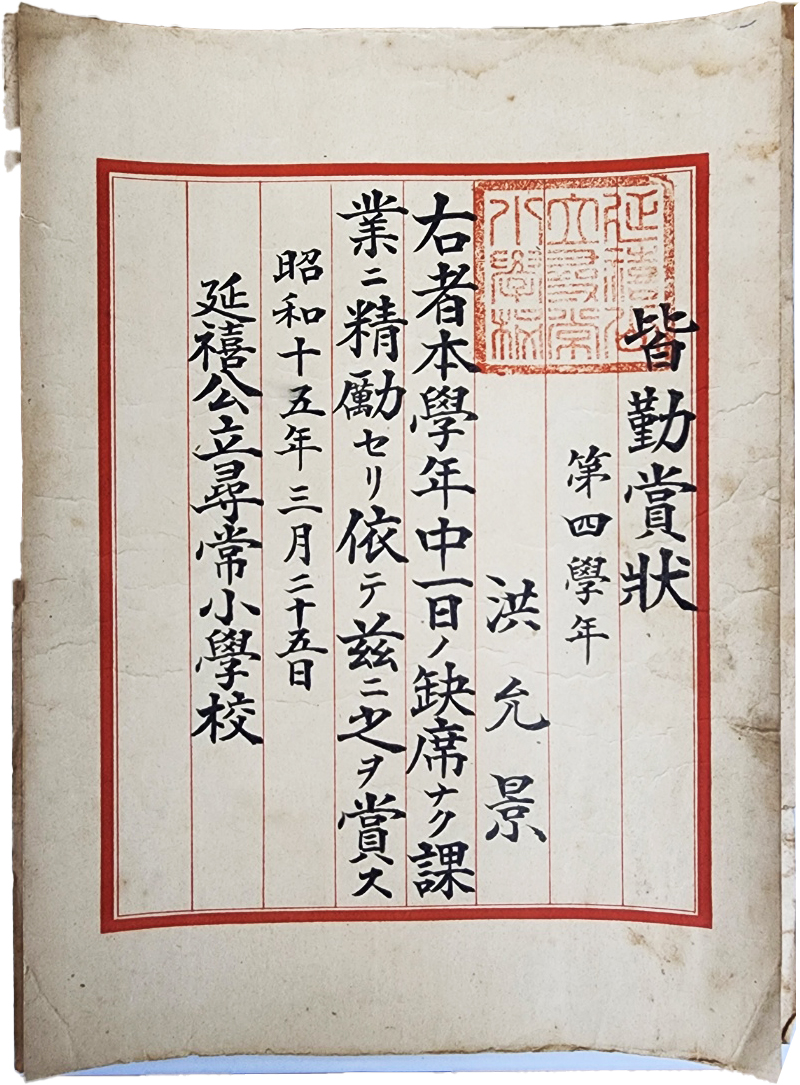 皆勤賞狀
第四學年
洪允景
右者本學年中一日ノ缺席ナク課
業ニ精勵セリ依テ玆ニ之ヲ賞ス
昭和十五年三月二十五日
延禧公立尋常小學校
延禧公
立尋常
小學校